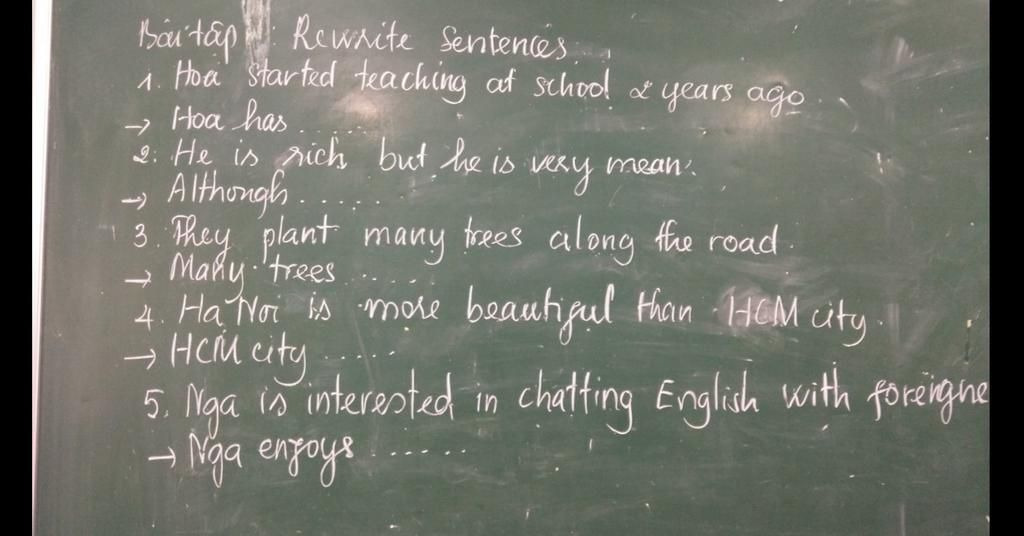 Bài tập Rewrite Sentences...
1. Hoa started teaching at school 2 years ago.
→ Hoa has ......
2. He is rich but he is very mean.
→ Although ......
3. They plant many trees along the road.
→ Many trees .....
4. Ha Noi is more beautiful than HCM city.
→ HCM city .....
5. Nga is interested in chatting English with foreigne
→ Nga enjoys ......